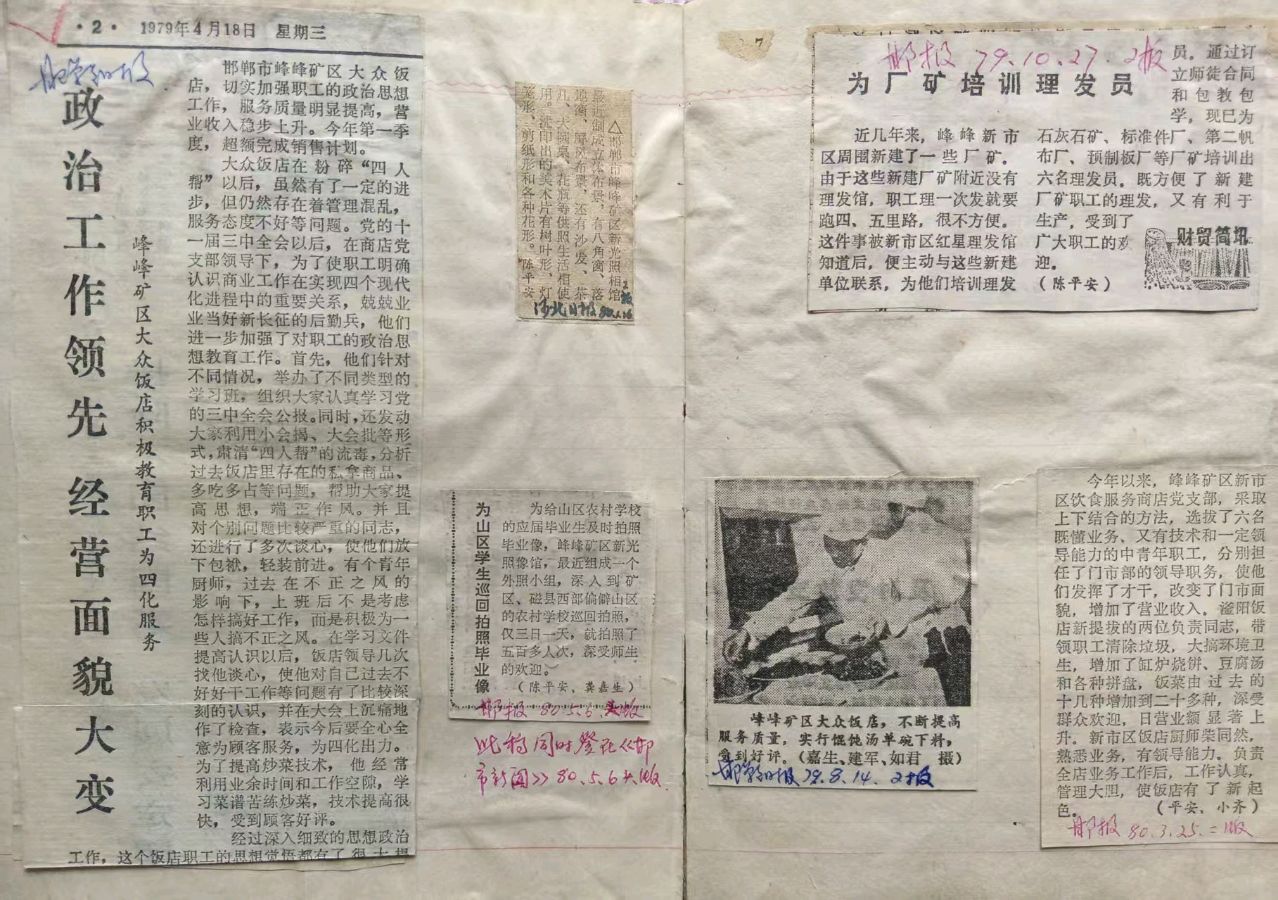 ·2· 1979年4月18日 星期三
邯郸日报
政治工作领先 经营面貌大变
峰峰矿区大众饭店积极教育职工为四化服务
邯郸市峰峰矿区大众饭
店，切实加强职工的政治思想
工作，服务质量明显提高，营
业收入稳步上升。今年第一季
度，超额完成销售计划。
大众饭店在粉碎“四人
帮”以后，虽然有了一定的进
步，但仍然存在着管理混乱，
服务态度不好等问题。党的十
一届三中全会以后，在商店党
支部领导下，为了使职工明确
认识商业工作在实现四个现代
化进程中的重要关系，兢兢业
业当好新长征的后勤兵，他们
进一步加强了对职工的政治思
想教育工作。首先，他们针对
不同情况，举办了不同类型的
学习班，组织大家认真学习党
的三中全会公报。同时，还发动
大家利用小会揭、大会批等形
式，肃清“四人帮”的流毒，分析
过去饭店里存在的私拿商品、
多吃多占等问题，帮助大家提
高思想，端正作风。并且
对个别问题比较严重的同志，
还进行了多次谈心，使他们放
下包袱，轻装前进。有个青年
厨师，过去在不正之风的
影响下，上班后不是考虑
怎样搞好工作，而是积极为一
些人搞不正之风。在学习文件
提高认识以后，饭店领导几次
找他谈心，使他对自己过去不
好好干工作等问题有了比较深
刻的认识，并在大会上沉痛地
作了检查，表示今后要全心全
意为顾客服务，为四化出力。
为了提高炒菜技术，他经常
利用业余时间和工作空隙，学
习菜谱苦练炒菜，技术提高很
快，受到顾客好评。
经过深入细致的思想政治
工作，这个饭店职工的思想觉悟都有了很大提
△邯郸市峰峰矿区新光照相馆
最近制成立体布景，有八角窗、落
地窗、屏风布景，还有沙发、茶
几、大圆桌、花瓶等供照生活相使
用。洗印出的美术片有树叶形、灯
笼形、剪纸形和各种花形。陈平安
河北日报
2版
为山区学生巡回拍照毕业像
为给山区农村学校
的应届毕业生及时拍照
毕业像，峰峰矿区新光
照像馆，最近组成一个
外照小组，深入到矿
区、磁县西部偏僻山区
的农村学校巡回拍照，
仅三日一天，就拍照了
五百多人次，深受师生
的欢迎。
（陈平安、龚嘉生）
邯报 80.5.6.
此稿同时登在《邯
市新闻》80.5.6
7
邯报 79.10.27. 2版
为厂矿培训理发员
近几年来，峰峰新市
区周围新建了一些厂矿。
由于这些新建厂矿附近没有
理发馆，职工理一次发就要
跑四、五里路，很不方便。
这件事被新市区红星理发馆
知道后，便主动与这些新建
单位联系，为他们培训理发
员，通过订
立师徒合同
和包教包
学，现已为
石灰石矿、标准件厂、第二帆
布厂、预制板厂等厂矿培训出
六名理发员。既方便了新建
厂矿职工的理发，又有利于
生产，受到了
广大职工的欢
迎。
（陈平安）
财贸简讯
峰峰矿区大众饭店，不断提高
服务质量，实行馄饨汤单碗下料，
受到好评。（嘉生、建军、如君 摄）
邯郸日报 79.8.14. 2版
今年以来，峰峰矿区新市
区饮食服务商店党支部，采取
上下结合的方法，选拔了六名
既懂业务、又有技术和一定领
导能力的中青年职工，分别担
任了门市部的领导职务，使他
们发挥了才干，改变了门市面
貌，增加了营业收入。滏阳饭
店新提拔的两位负责同志，带
领职工清除垃圾，大搞环境卫
生，增加了缸炉烧饼、豆腐汤
和各种拼盘，饭菜由过去的
十几种增加到二十多种，深受
群众欢迎，日营业额显著上
升。新市区饭店厨师栗同然，
熟悉业务，有领导能力。负责
全店业务工作后，工作认真，
管理大胆，使饭店有了新起
色。（平安、小齐）
邯报 80.3.25.二版